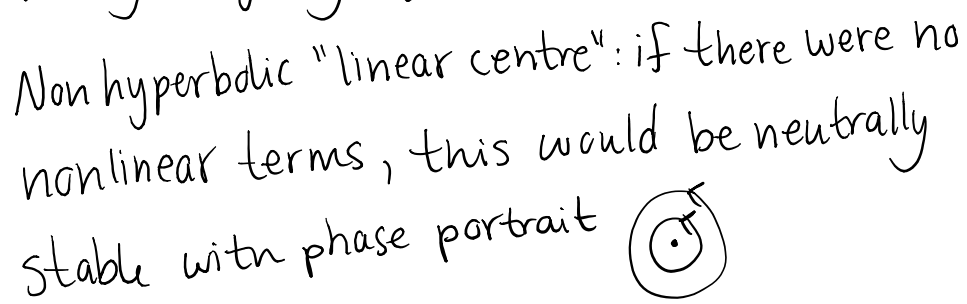 Non hyperbolic "linear centre": if there were no
nonlinear terms, this would be neutrally
stable with phase portrait